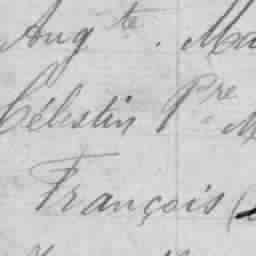 Augte. Ma
Célestin Pre M
François (